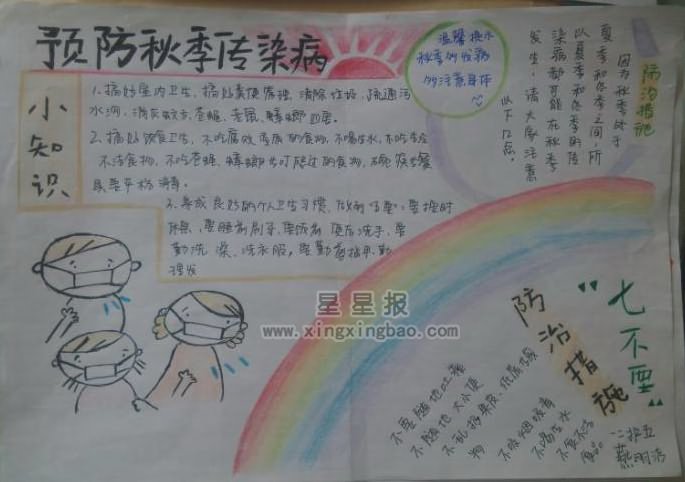 预防秋季传染病
小知识
1、搞好室内卫生,搞好粪便管理,清除垃圾,疏通污
水沟,消灭蚊子、苍蝇、老鼠、蟑螂 四害。
2、搞好饮食卫生,不吃腐败变质的食物,不喝生水,不吃生冷
不洁食物,不吃苍蝇、蟑螂
具要严格消毒。
3、养成良好的个人卫生习惯,
休息,要睡前刷牙,要饭前便后洗手,要
勤洗澡、洗衣服,要勤剪指甲、勤
理发
温馨
秋季的发病
的注意身体
防治措施
因为秋季处于
夏季和冬季之间,所
以夏季和冬季的传
染病都可能在秋季
发生,请大家注意
以下几点。
星星报
www.xingxingbao.com
防治措施
“七不要”
不要随地吐痰
不随地大小便
不乱扔果皮、纸屑
物
不吸烟
不喝生水
不食不洁
食品